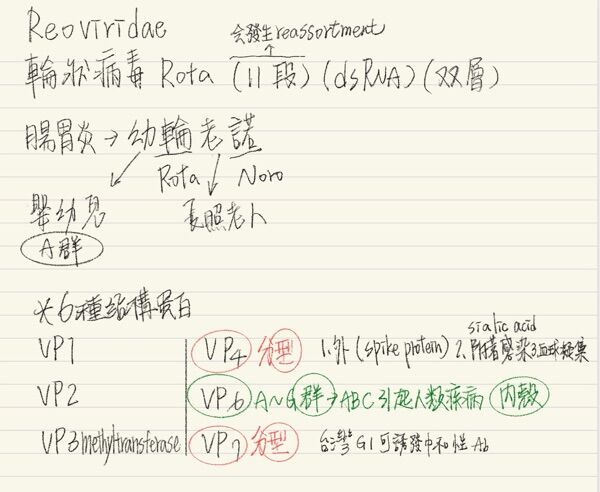 Reoviridae
会發生reassortment
輪狀病毒 Rota (11段) (dsRNA) (双層)
腸胃炎→幼輪老諾
Rota Noro
嬰幼兒 長照老人
A群
6種結構蛋白
VP1 VP4 分型 1.外 (spike protein) 2.附著感染 3.血球凝集
sialic acid
VP2 VP6 A~G群→ABC引起人類疾病 內殼
VP3 methyltransferase VP7 分型 台灣G1可誘發中和性Ab